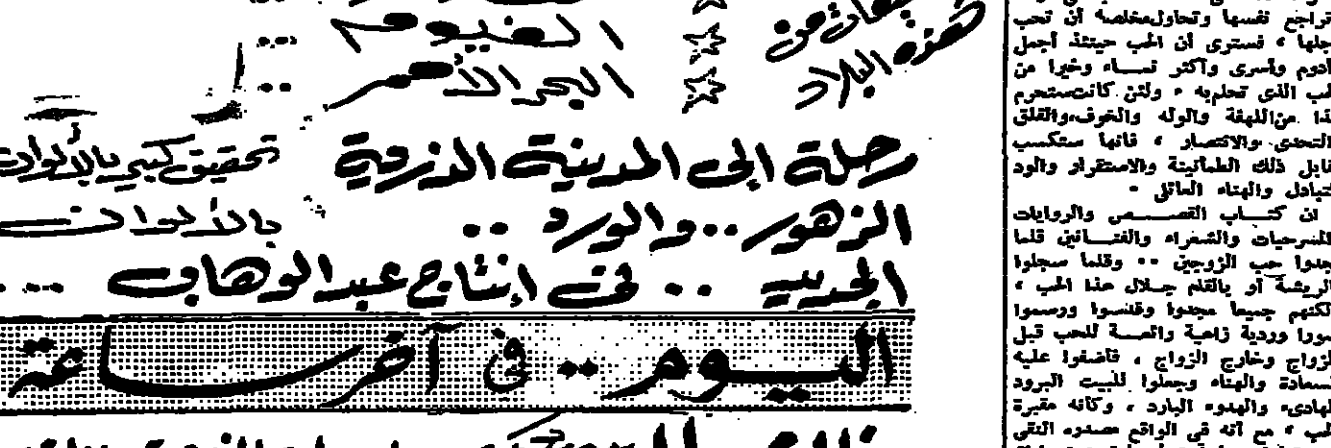 هذه البلاد
الفيوم ..
البحر الأحمر ..
رحلة إلى المدينة الذرية
تحقيق كبير بالألوان
الزهور .. والورد ..
بالألوان
الجديد .. في إنتاج عبد الوهاب ...
اليوم .. في آخر ساعة
تراجع نفسها وتحاول مخلصة أن تحب
جلها ، فسترى أن الحب حينئذ أجمل
أدوم وأسرى وأكثر نمساء وخيرا من
لحب الذي تحلم به . ولئن كانت ستحرم
ذا من اللهفة والوله والخوف والقلق
التحدي والانتصار ، فانها ستكسب
قابل ذلك الطمأنينة والاستقرار والود
لتبادل والهناء العائلي .
ان كتــاب القصــص والروايات
المسرحيات والشعراء والفنــانين قلما
جدوا حب الزوجين .. وقلما سجلوا
الريشة أو بالقلم جــلال هذا الحب ،
لكنهم جميعا مجدوا وقدسوا ورسموا
صورا وردية زاهية والعــة للحب قبل
لزواج وخارج الزواج ، فأضفوا عليه
سعادة والهناء وجعلوا للبيت البرود
لهادىء والهدوء البارد ، وكأنه مقبرة
لحب ، مع أنه في الواقع مصدره النقي